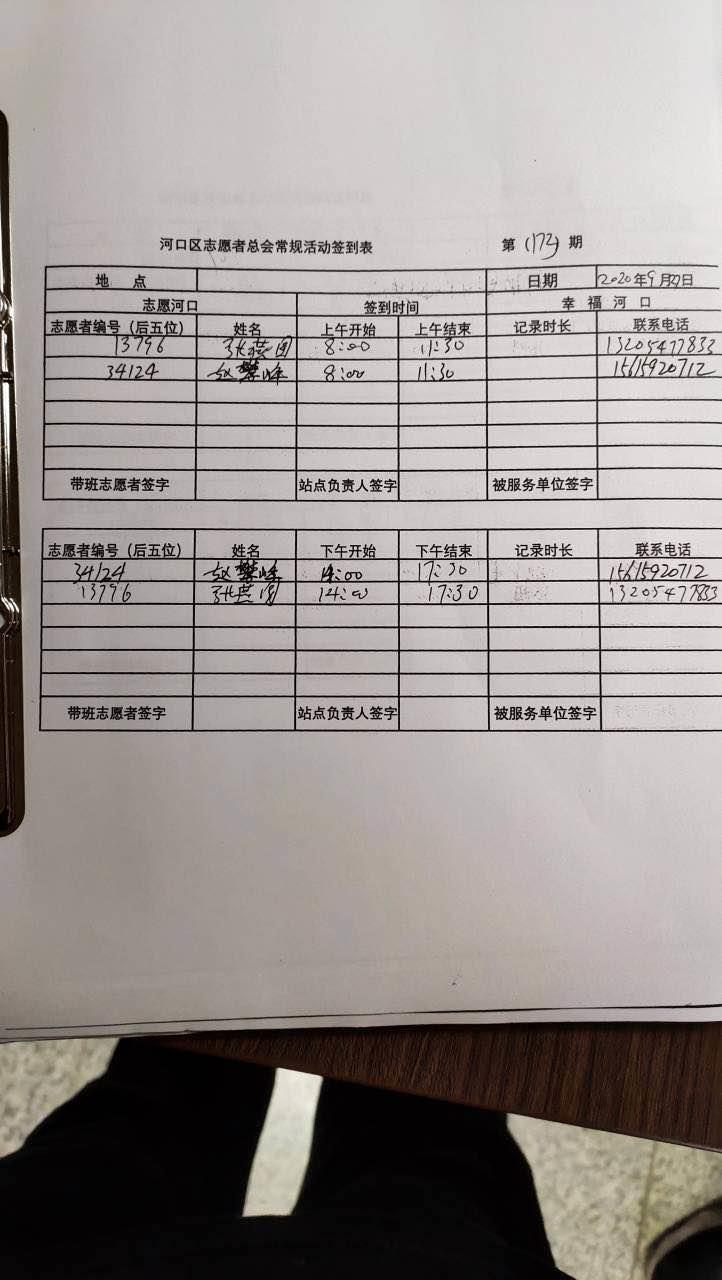 河口区志愿者总会常规活动签到表 第(173)期
地 点 日期 2020年9月27日
志愿河口 签到时间 幸福河口
志愿者编号(后五位) 姓名 上午开始 上午结束 记录时长 联系电话
13796 张燕 8:00 11:30 13205477833
34124 赵攀峰 8:00 11:30 15615920712
带班志愿者签字 站点负责人签字 被服务单位签字
志愿者编号(后五位) 姓名 下午开始 下午结束 记录时长 联系电话
34124 赵攀峰 14:00 17:30 15615920712
13796 张燕 14:00 17:30 13205477833
带班志愿者签字 站点负责人签字 被服务单位签字